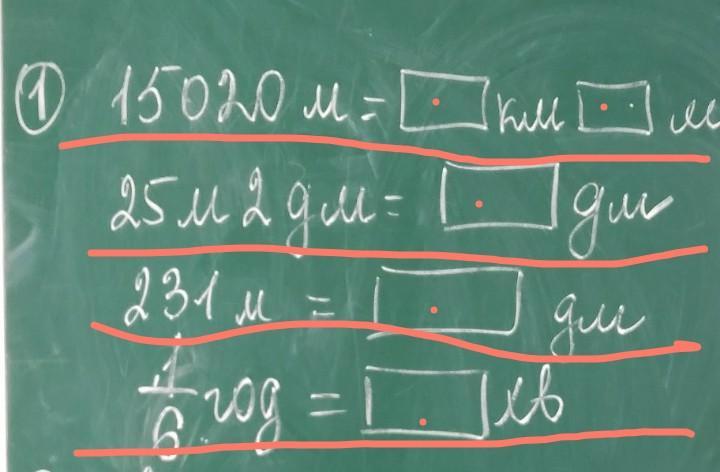 ① 15020 м = □ км □ м
25 м 2 дм = □ дм
231 м = □ дм
1/6 год = □ хв